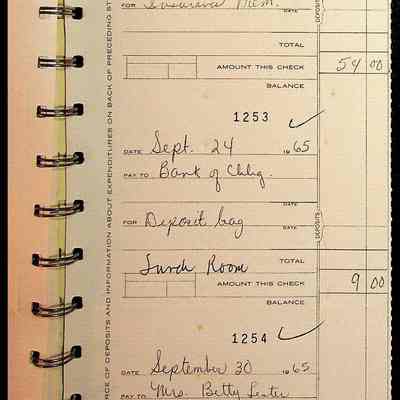 FOR Insurance Prem.
DATE
TOTAL
AMOUNT THIS CHECK 54 00
BALANCE
1253
DATE Sept. 24 1965
PAY TO Bank of Chbg.
DATE
FOR Deposit bag
DATE
DEPOSITS
Lunch Room TOTAL
AMOUNT THIS CHECK 9 00
BALANCE
1254
DATE September 30 1965
PAY TO Mrs. Betty Lester
RCE OF DEPOSITS AND INFORMATION ABOUT EXPENDITURES ON BACK OF PRECEDING ST